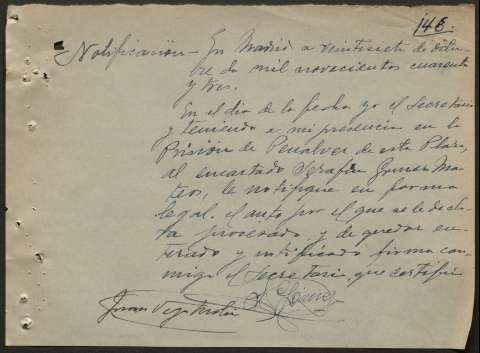 146.
Notificación - En Madrid a veintisiete de octu-
bre de mil novecientos cuarenta
y tres.
En el dia de la fecha yo el Secretario
y teniendo a mi presencia en la
Prisión de Penalver de esta Plaza,
al encartado Serafin Gomez Ma-
teos, le notifiqué en forma
legal. el auto por el que se le decla-
ra procesado y de quedar en-
terado y notificado firma con-
migo el Secretario que certifico
Juan Vega
S. Gomez